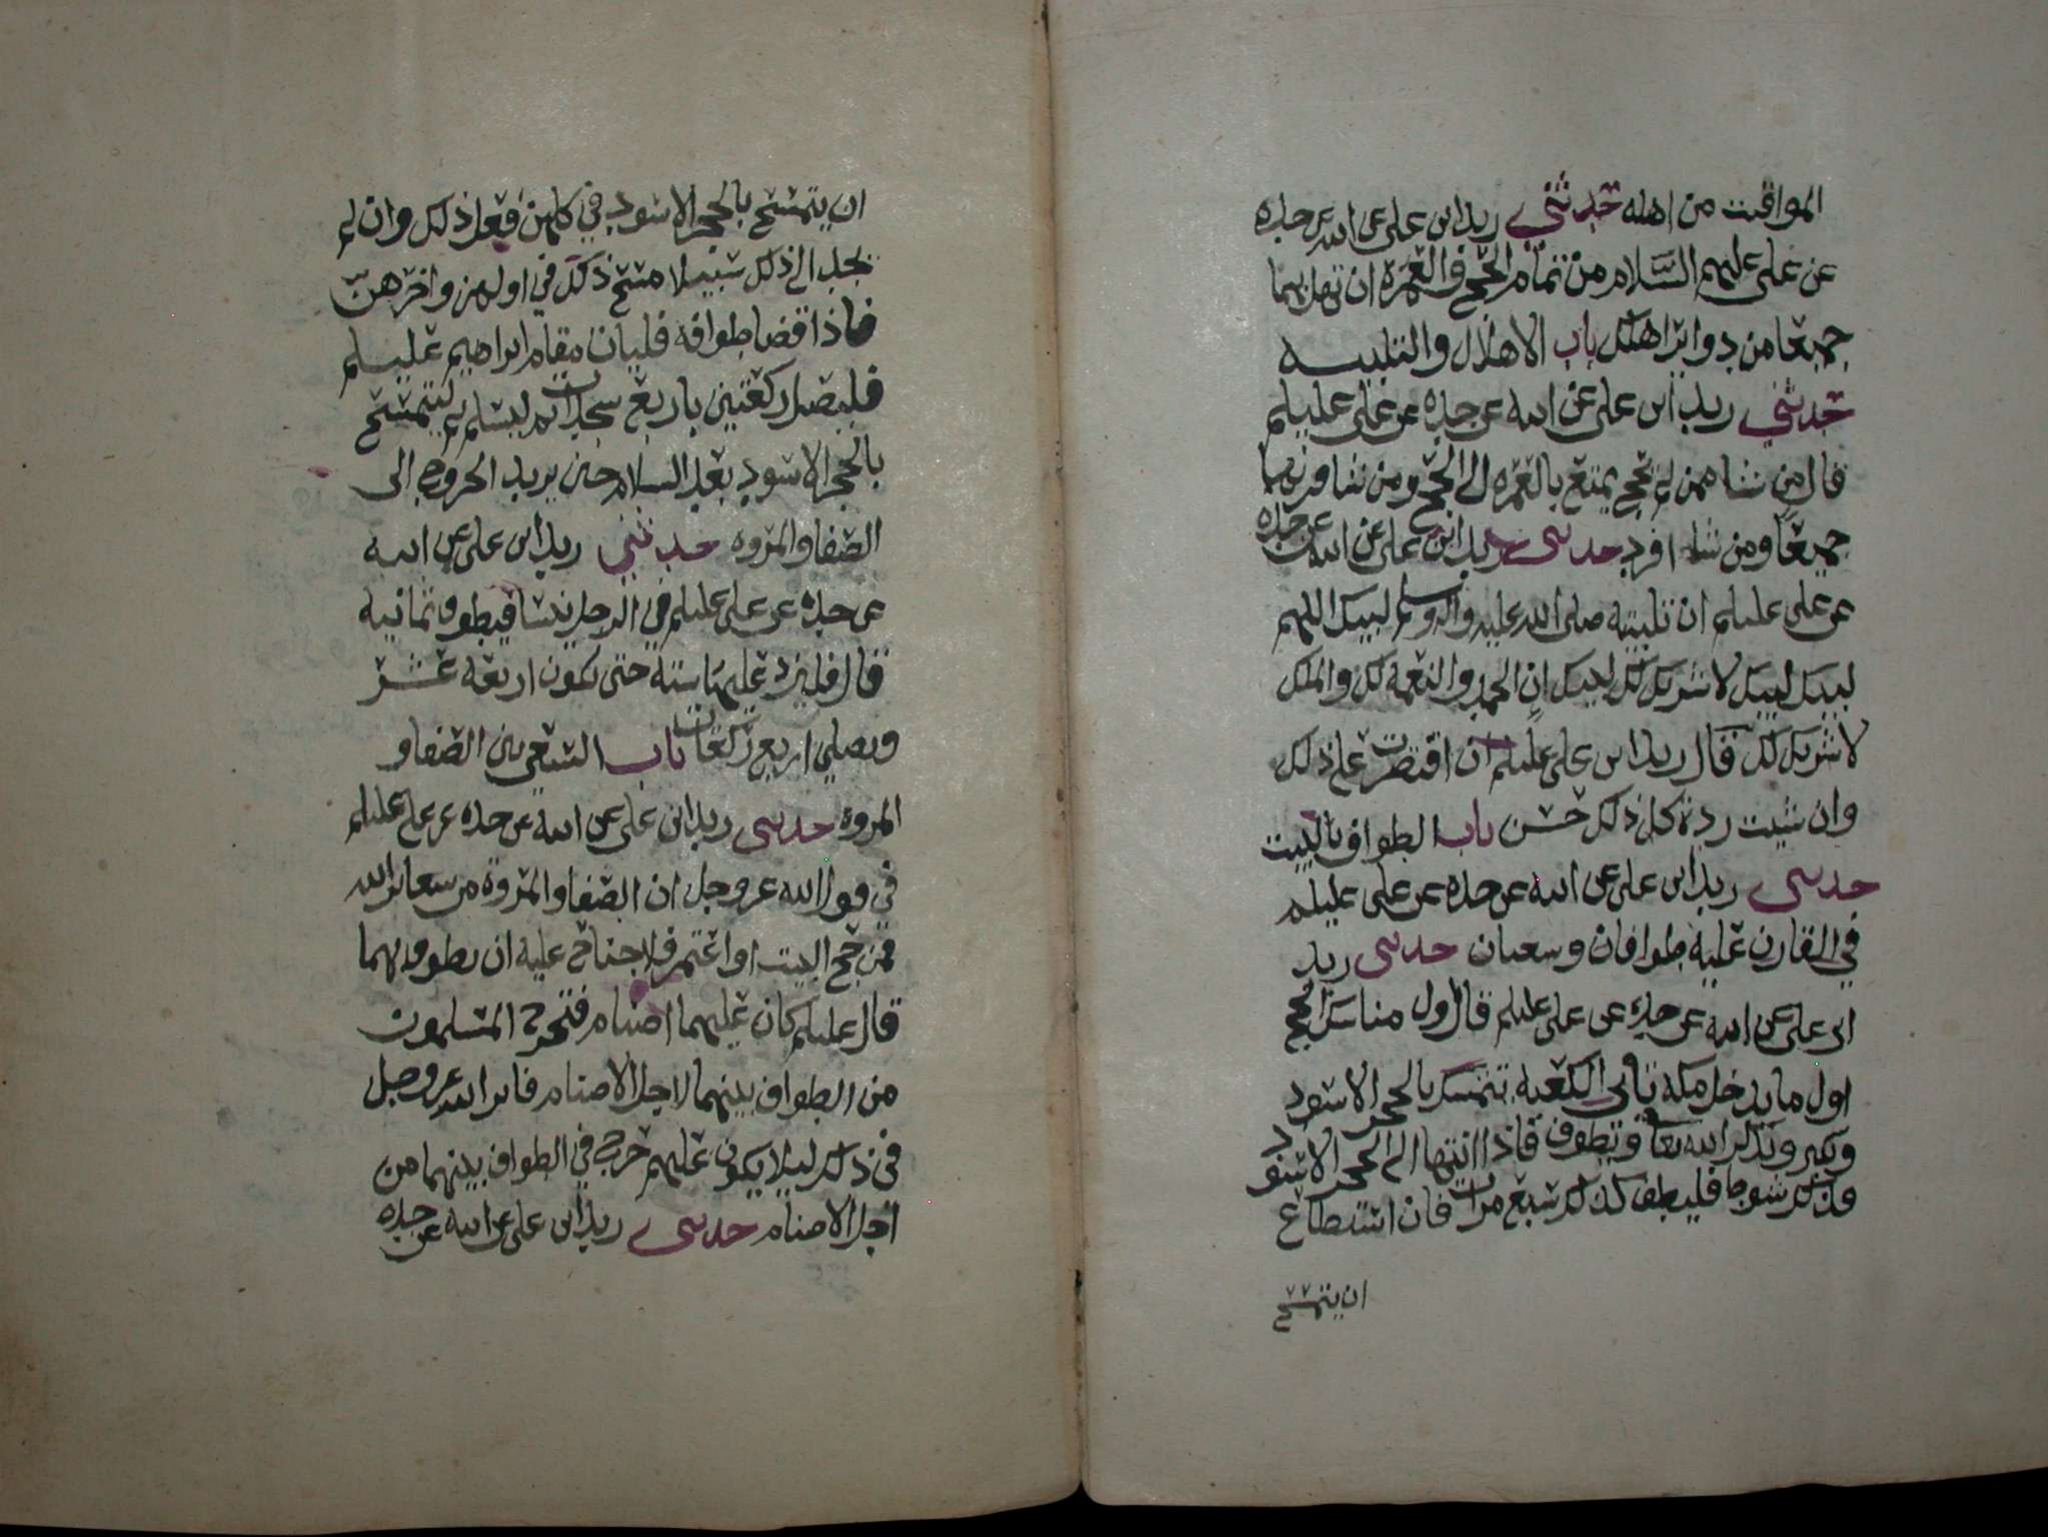 المواقيت من اهله حدثني زيد ابن علي عن ابيه عن جده
عن علي عليهم السلام من تمام الحج والعمرة ان تهل بهما
جميعا من دويرة اهلك باب الاهلال والتلبيه
حدثني زيد ابن علي عن ابيه عن جده عن علي عليلم
قال من شا ممن لم يحج يمتع بالعمره الى الحج ومن شا قرنهما
جميعا ومن شا افرد حدثني زيد ابن علي عن ابيه عن جده
عن علي عليلم ان تلبيته صلى الله عليه واله وسلم لبيك اللهم
لبيك لبيك لا شريك لك لبيك ان الحمد والنعمة لك والملك
لا شريك لك قال زيد ابن علي عليلم ان اقتصرت على ذلك
وان شيت زدة كل ذلك حسن باب الطواف بالبيت
حدثني زيد ابن علي عن ابيه عن جده عن علي عليلم
في القارن عليه طوافان وسعيان حدثني زيد
ابن علي عن ابيه عن جده عن علي عليلم قال اول مناسك الحج
اول ما يدخل مكه تاتي الكعبه تتمسك بالحجر الاسود
وتكبر وتذكر الله تعا وتطوف فاذا انتها الى الحجر الاسود
فذلك شوط فليطف كذلك سبع مرات فان استطاع
ان يتمسح
ان يتمسح بالحجر الاسود في كلهن فعل ذلك وان لم
يجد الى ذلك سبيلا مسح ذلك في اولهن واخرهن
فاذا قضا طوافه فليات مقام ابراهيم عليلم
فليصل ركعتين باربع سجدات ثم ليسلم ثم ليتمسح
بالحجر الاسود بعد السلام حين يريد الخروج الى
الصفا والمروه حدثني زيد ابن علي عن ابيه
عن جده عن علي عليلم في الرجل ينسا فيطوف ثمانيه
قال فليزد عليها ستة حتى تكون اربعة عشر
ويصلي اربع ركعات باب السعي بين الصفا و
المروة حدثني زيد ابن علي عن ابيه عن جده عن علي عليلم
في قول الله عز وجل ان الصفا والمروة من شعائر الله
فمن حج البيت او اعتمر فلا جناح عليه ان يطوف بهما
قال عليلم كان عليهما اصنام فتحرج المسلمون
من الطواف بينهما لاجل الاصنام فانزل الله عز وجل
في ذلك ليلا يكون عليهم حرج في الطواف بينهما من
اجل الاصنام حدثني زيد ابن علي عن ابيه عن جده